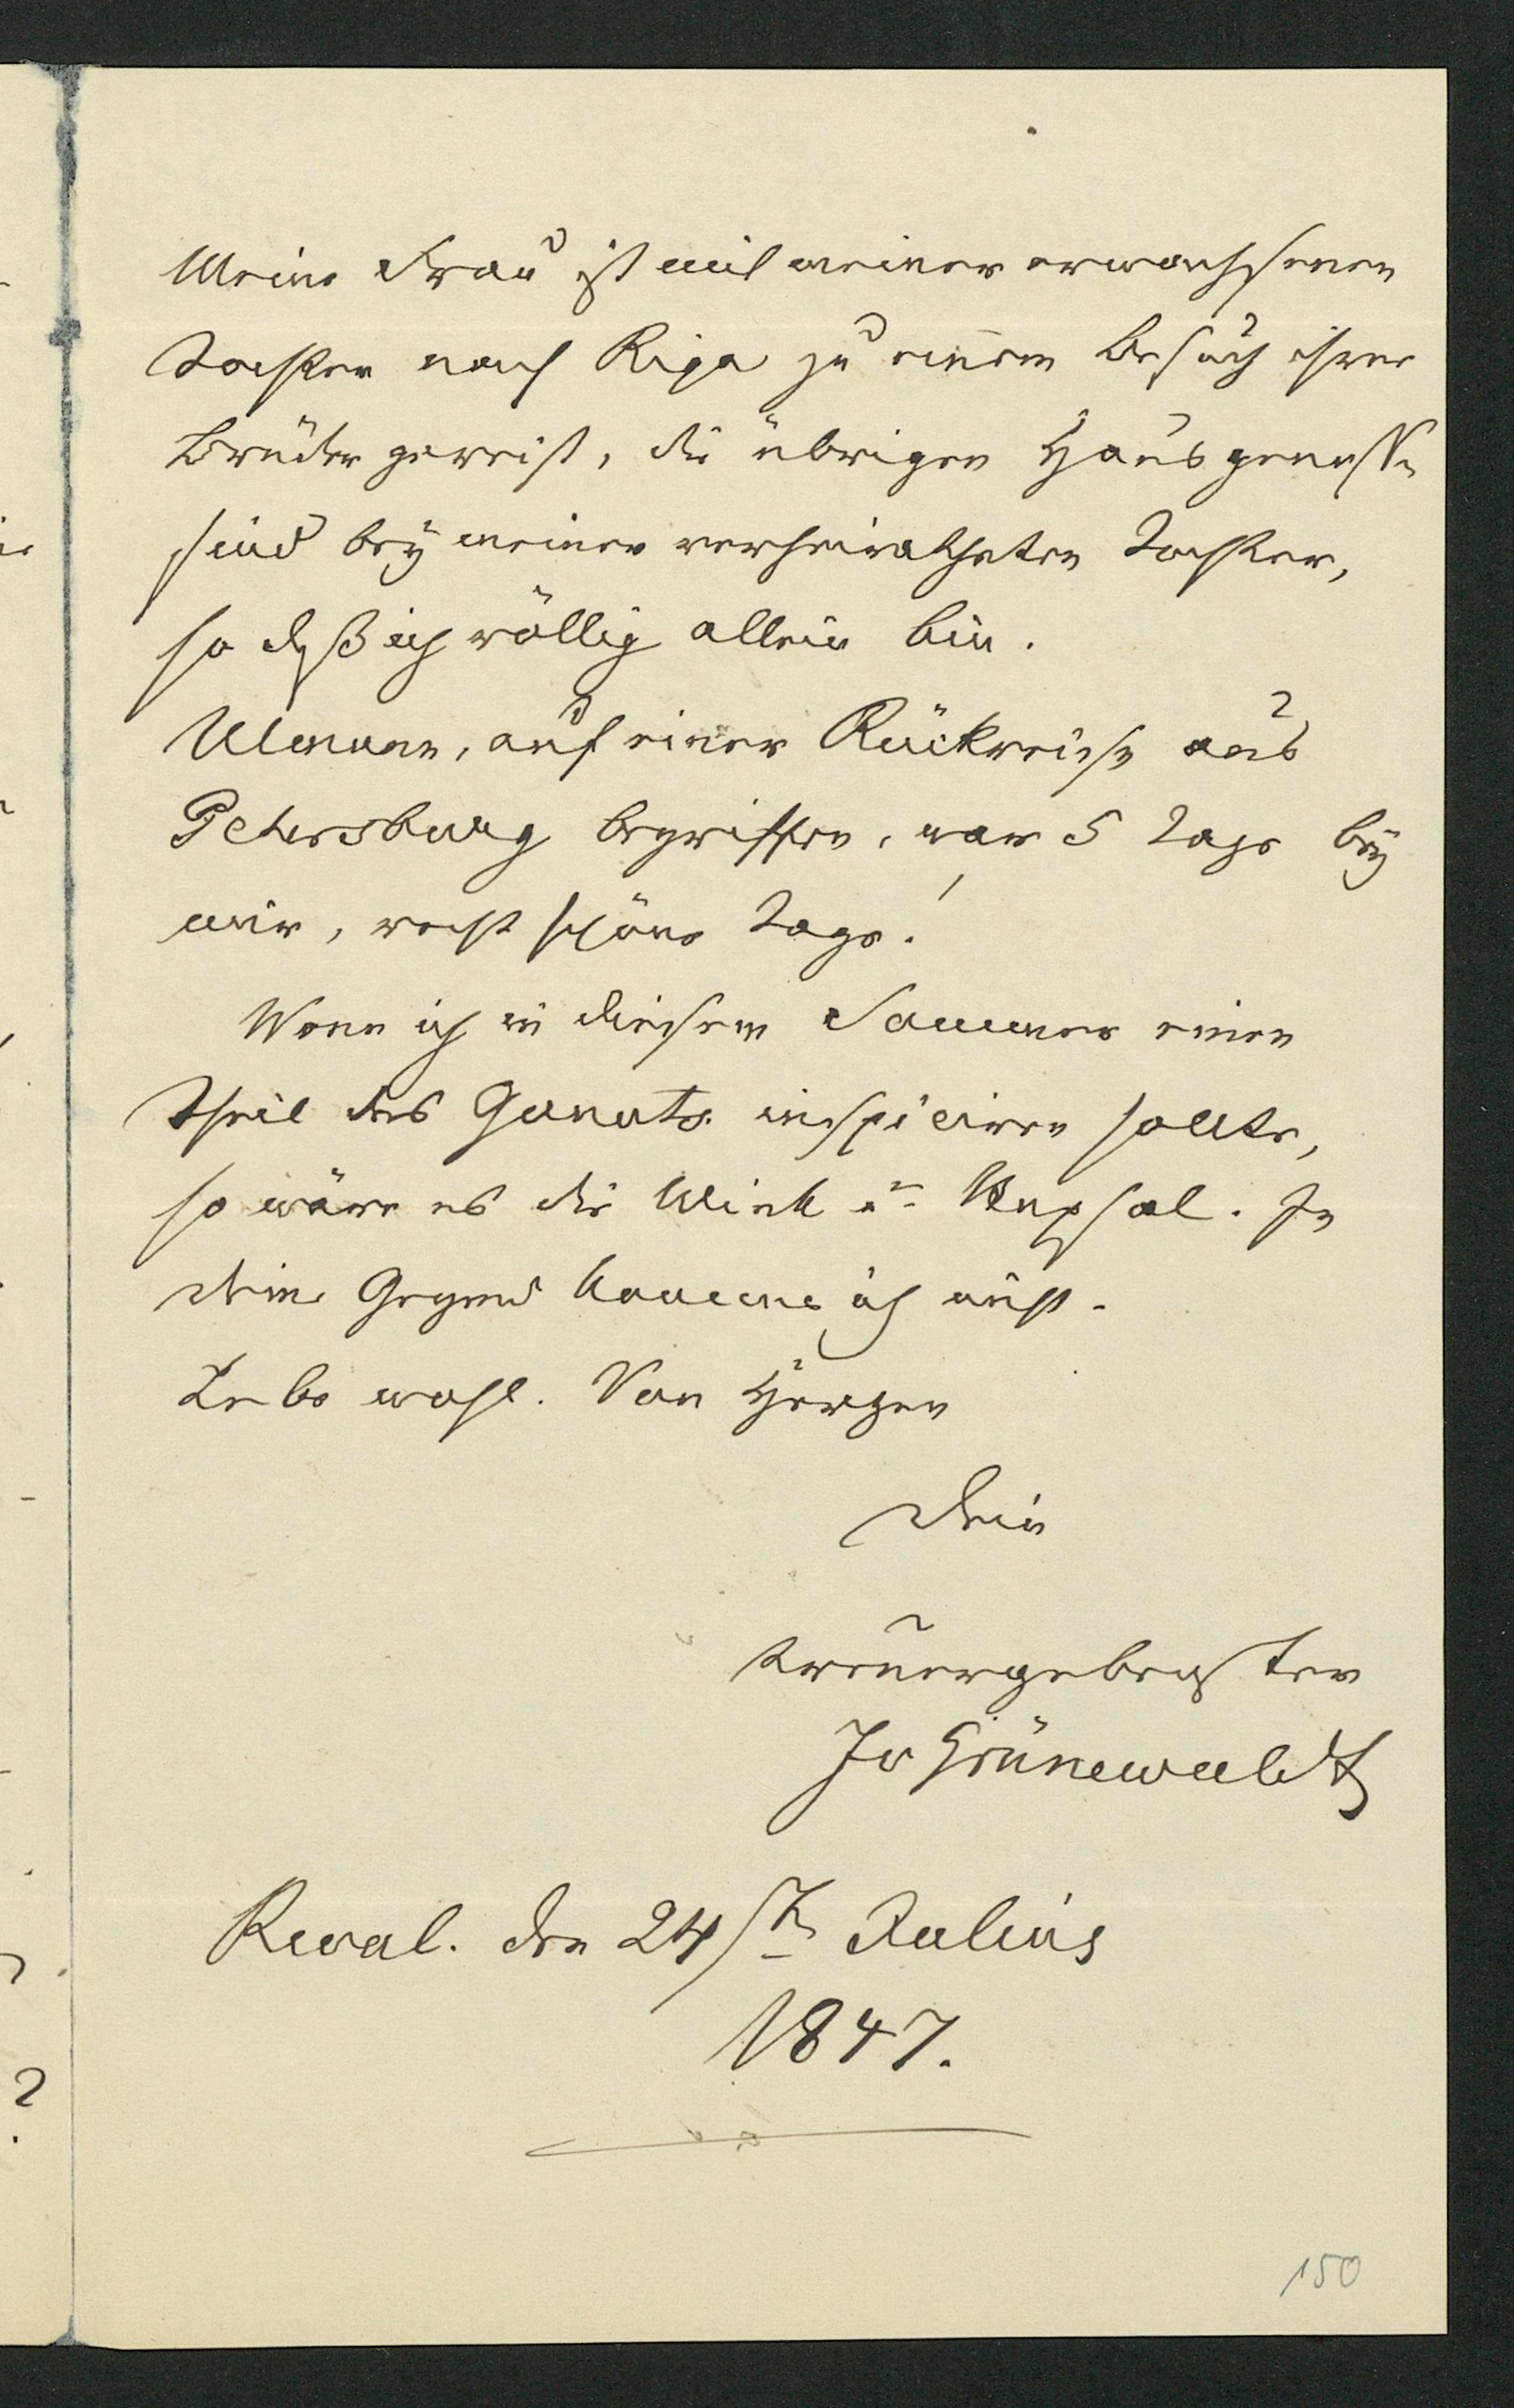 Meine Frau ist mit meiner erwachsenen
Tochter nach Riga zu einem Besuch ihrer
Brüder gereist, die übrigen Hausgenossen
sind bey meiner verheiratheten Tochter,
so daß ich völlig allein bin.
Ulmann, auf seiner Rückreise aus
Petersburg begriffen, war 5 Tage bey
mir, recht schöne Tage!
Wenn ich in diesem Sommer einen
Theil des inspiciren sollte,
so wäre es die Wiek u. Hapsal. In
Deine Gegend komme ich nicht.
Lebe wohl. Von Herzen
Dein
treuergebenster
Grünewaldt
Reval. den 24 Julius
1847.
150